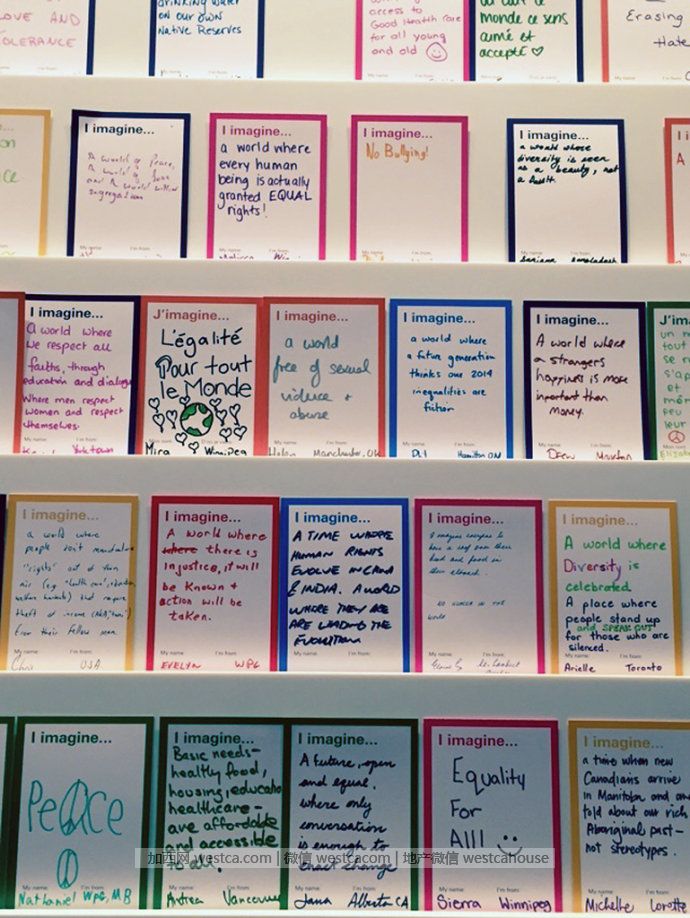 LOVE AND
TOLERANCE
drinking water
on our own
Native Reserves
access to
Good Health care
for all young
and old
monde ce sens
aimé et
accepté
Erasing
Hate
I imagine...
A world of Peace,
A world of love
and A world without
segregation
I imagine...
a world where
every human
being is actually
granted EQUAL
rights!
I imagine...
No Bullying!
I imagine...
a world where
diversity is seen
as a beauty, not
a fault.
Bangladesh
I imagine...
a world where
we respect all
faiths, through
education and dialogue
Where men respect
women and respect
themselves.
My name: I'm from:
Yorktown
J'imagine...
L'égalité
Pour tout
le Monde
Mira Winnipeg
I imagine...
a world
free of sexual
violence +
abuse
My name: I'm from:
Helen Manchester, UK
I imagine...
a world where
a future generation
thinks our 2014
inequalities are
fiction
My name: I'm from:
Hamilton ON
I imagine...
A world where
a strangers
happiness is more
important than
money.
My name: I'm from:
Drew
I imagine...
a world where
people don't
"rights" out of thin
air
theft of income
from their fellow man.
My name: I'm from:
Chris USA
I imagine...
A world where
there is
injustice, it will
be known +
action will be
taken.
My name: I'm from:
EVELYN WPG
I imagine...
A TIME WHERE
HUMAN RIGHTS
EVOLVE IN CHINA
& INDIA. A WORLD
WHERE THEY ARE
ARE LEADING THE
EVOLUTION
I imagine...
I imagine everyone to
have a roof over their
head and food in
NO HUNGER IN THE
WORLD
My name: I'm from:
I imagine...
A world where
Diversity is
celebrated.
A place where
people stand up
and SPEAK OUT
for those who are
silenced.
My name: I'm from:
Arielle Toronto
I imagine...
Peace
My name: I'm from:
Nathaniel WPG, MB
I imagine...
Basic needs-
healthy food,
housing, education
healthcare -
are affordable
and accessible
to all.
Andrea Vancouver
I imagine...
A future, open
and equal.
where only
conversation
is enough to
enact change
My name: I'm from:
Jana Alberta CA
I imagine...
Equality
For
All!
My name: I'm from:
Sierra Winnipeg
I imagine...
a time when new
Canadians arrive
in Manitoba and are
told about our rich
Aboriginal past-
not stereotypes.
My name: I'm from:
Michelle Lorette
加西网 westca.com | 微信 westcacom | 地产微信 westcahouse